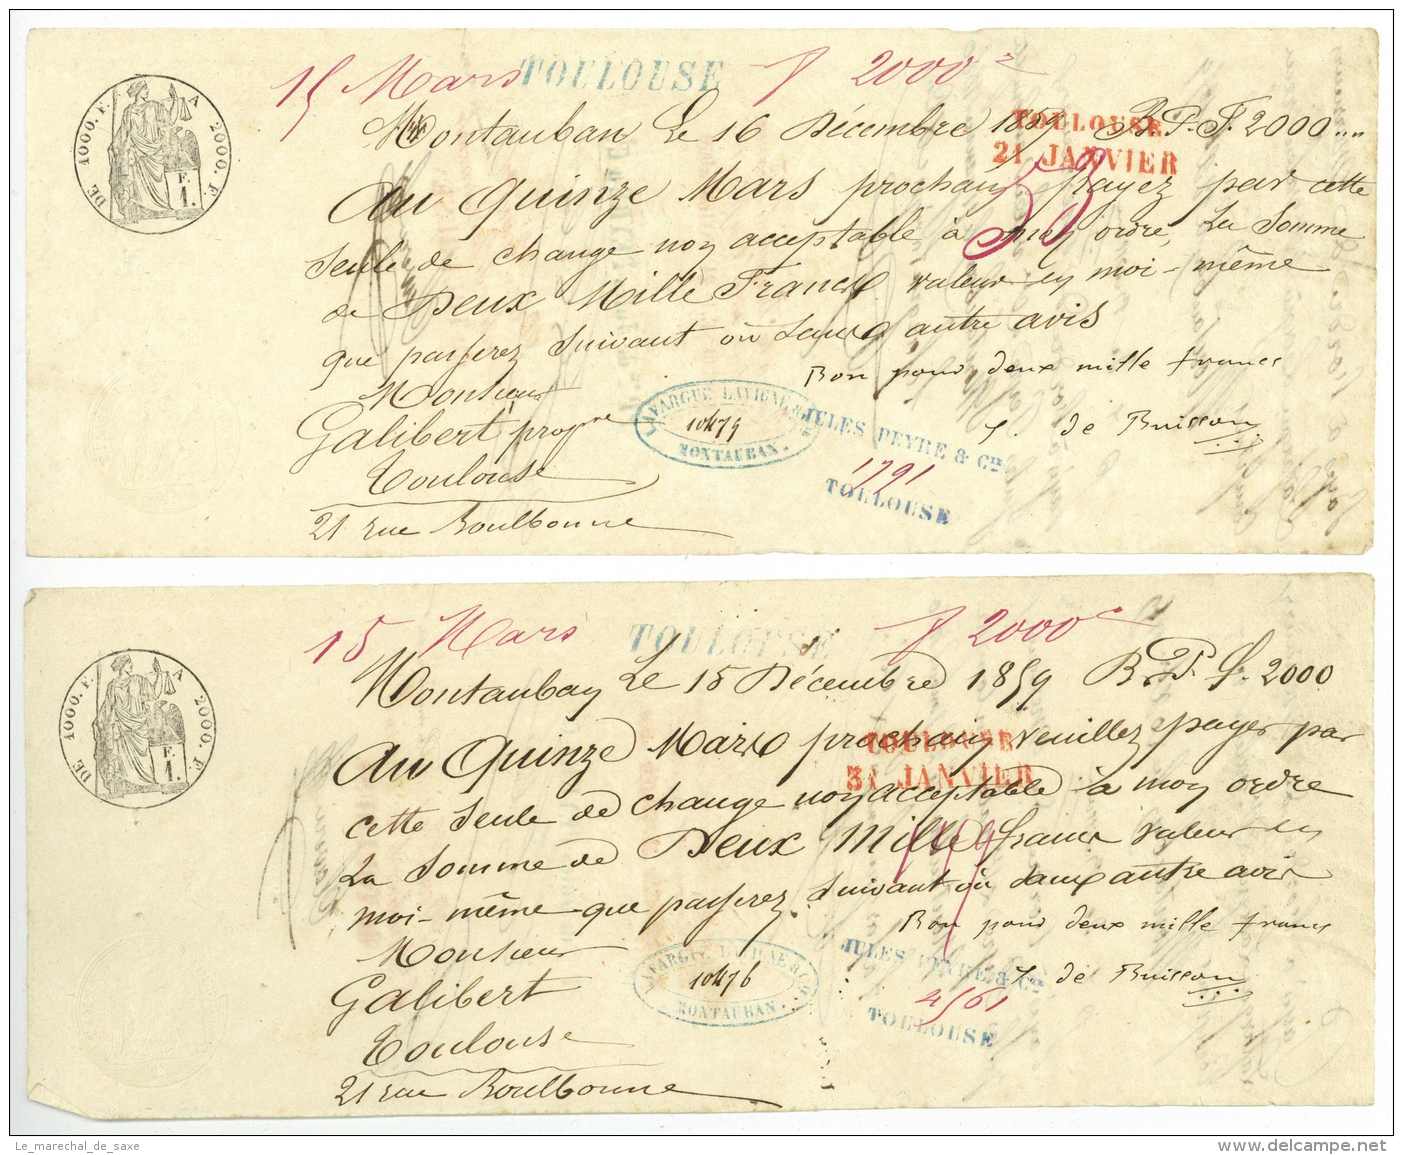 15 Mars TOULOUSE f 2000
DE 1000. F. A 2000. F.
F.
1.
Montauban Le 16 Décembre 1859 B. P. F. 2000
TOULOUSE
21 JANVIER
Au Quinze Mars prochain payez par cette
seule de change non acceptable à mon ordre, La Somme
de Deux Mille Francs valeur en moi-même
que passerez suivant ou sans autre avis
Bon pour deux mille francs
Monsieur
Galibert propre
J. de Buisson
LAVARGUE LAVIGNE & Cie
10479
MONTAUBAN.
JULES PEYRE & Cie
1791
TOULOUSE
Toulouse
21 rue Boulbonne
15 Mars TOULOUSE f 2000
DE 1000. F. A 2000. F.
F.
1.
Montauban Le 15 Décembre 1859 B. P. f. 2000
TOULOUSE
31 JANVIER
Au Quinze Mars prochain veuillez payer par
cette seule de change non acceptable à mon ordre
La Somme de Deux Mille francs valeur en
moi-même que passerez suivant ou sans autre avis
Bon pour deux mille francs
Monsieur
Galibert
J. de Buisson
LAVARGUE LAVIGNE & Cie
10476
MONTAUBAN.
JULES PEYRE & Cie
4561
TOULOUSE
Toulouse
21 rue Boulbonne
Le_marechal_de_saxe
delcampe.net